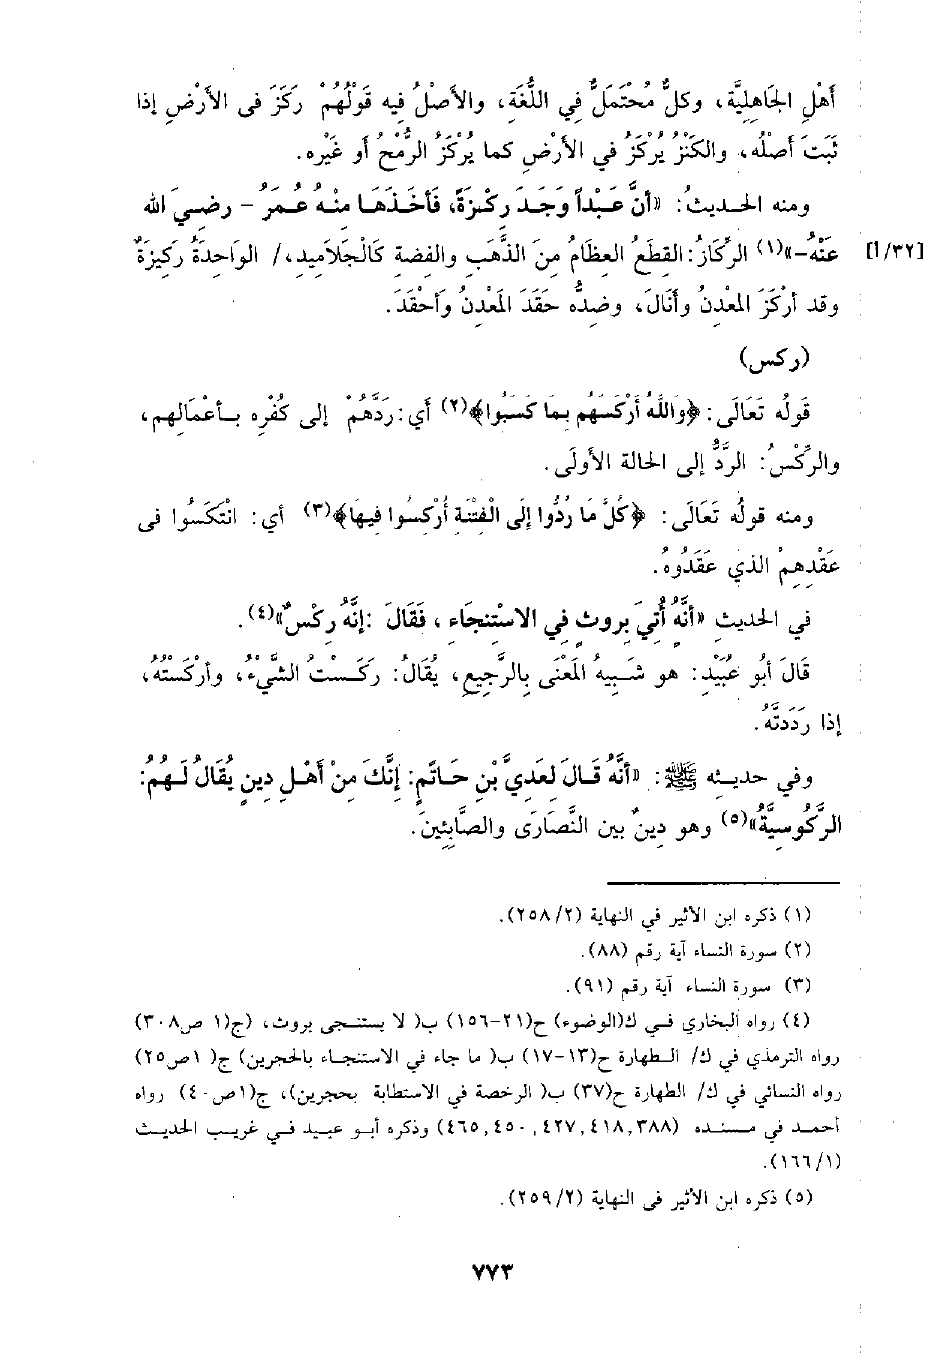 أَهْلِ الجَاهِلِيَّةِ، وكلٌّ مُحْتَمَلٌ فِي اللُّغَةِ، والأصْلُ فِيهِ قَوْلُهُمْ رَكَزَ فى الأَرْضِ إذَا
ثَبَتَ أصْلُهُ، والكَنْزُ يُرْكَزُ في الأرْضِ كما يُرْكَزُ الرُّمْحُ أو غَيْرِه.
ومنه الحَدِيثُ: «أنَّ عَبْداً وَجَدَ رِكْزَةً، فَأخَذَهَا مِنْهُ عُمَرُ - رضيَ الله
عَنْهُ-»(١) الرِّكَازُ: القِطَعُ العِظَامُ مِنَ الذَّهَبِ والفِضةِ كَالجَلامِيدِ،/ الواحِدَةُ رَكِيزَةٌ [٣٢/أ]
وقد أرْكَزَ المعْدِنُ وأنَالَ، وضِدُّه حَقَدَ المَعْدِنُ وَأحْقَدَ.
(ركس)
قَولُه تَعَالَى: ﴿وَاللَّهُ أَرْكَسَهُم بِمَا كَسَبُوا﴾(٢) أي: رَدَّهُمْ إلى كُفْرِهِ بأعْمَالِهِم،
والرِّكْسُ: الرَّدُّ إلى الحالة الأولَى.
ومنه قولُه تَعَالَى: ﴿كُلَّ مَا رُدُّوا إِلَى الْفِتْنَةِ أُرْكِسُوا فِيهَا﴾(٣) أي: انْتَكَسُوا فى
عَقْدِهِمْ الذي عَقَدُوهُ.
في الحديثِ «أنَّهُ أُتِيَ بروثٍ فِي الاسْتِنجَاءِ، فَقَالَ: إنَّهُ رِكْسٌ»(٤).
قَالَ أبُو عُبَيْدٍ: هو شَبِيهُ المَعْنَى بِالرَّجِيعِ، يُقَالُ: رَكَسْتُ الشَّيْءَ، وأرْكَسْتُهُ،
إذا رَدَدتَّهُ.
وفي حديثه ﷺ: «أنَّهُ قَالَ لِعَدِيِّ بْنِ حَاتَمٍ: إنَّكَ مِنْ أهْلِ دِينٍ يُقَالُ لَهُمُ:
الرَّكُوسِيَّةُ»(٥) وهو دِينٌ بين النَّصَارَى والصَّابِئِينَ.
(١) ذكره ابن الأثير في النهاية (٢/٢٥٨).
(٢) سورة النساء آية رقم (٨٨).
(٣) سورة النساء آية رقم (٩١).
(٤) رواه البخاري في ك(الوضوء) ح(٢١-١٥٦) ب( لا يستنجى بروث، (ج(١ ص٣٠٨)
رواه الترمذي في ك/ الطهارة ح(١٣-١٧) ب( ما جاء في الاستنجاء بالحجرين) ج( ١ص٢٥)
رواه النسائي في ك/ الطهارة ح(٣٧) ب( الرخصة في الاستطابة بحجرين)، ج(١ص٤٠) رواه
أحمد في مسنده (٣٨٨,٤١٨,٤٢٧,٤٥٠,٤٦٥) وذكره أبو عبيد في غريب الحديث
(١/١٦٦).
(٥) ذكره ابن الأثير فى النهاية (٢/٢٥٩).
٧٧٣